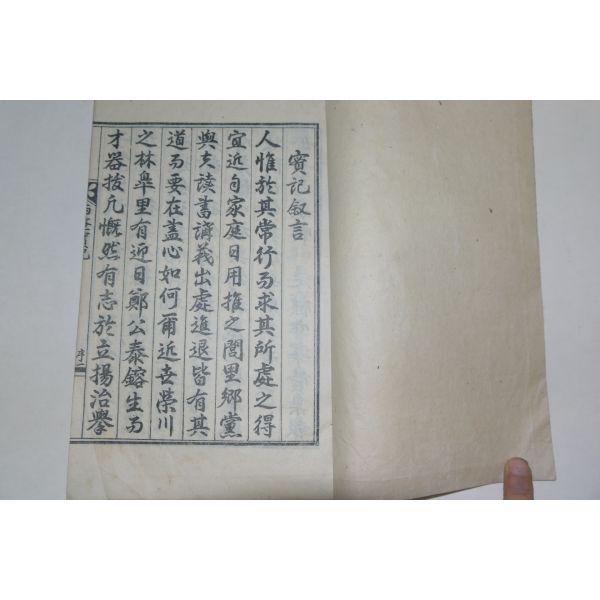 實記叙言
人惟於其常行而求其所處之得
宜近自家庭日用推之閭里鄉黨
與夫讀書講義出處進退皆有其
道而要在盖心如何爾近世榮川
之林皐里有近日鄭公泰鎔生而
才器拔凡慨然有志於立揚治擧
序